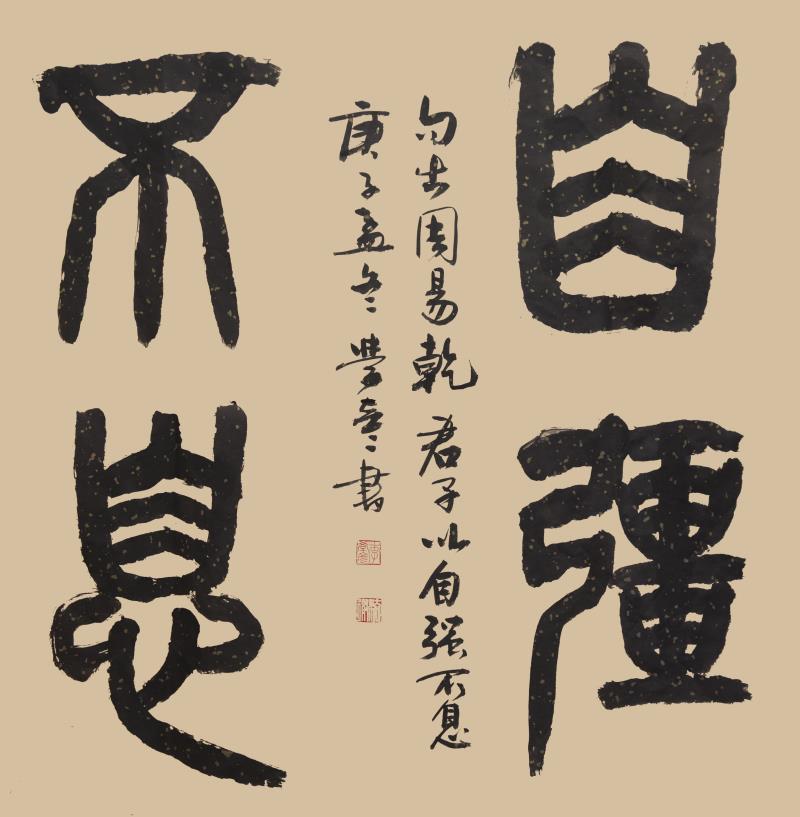 自彊
句出周易乾 君子以自强不息
庚子孟冬 書
不息